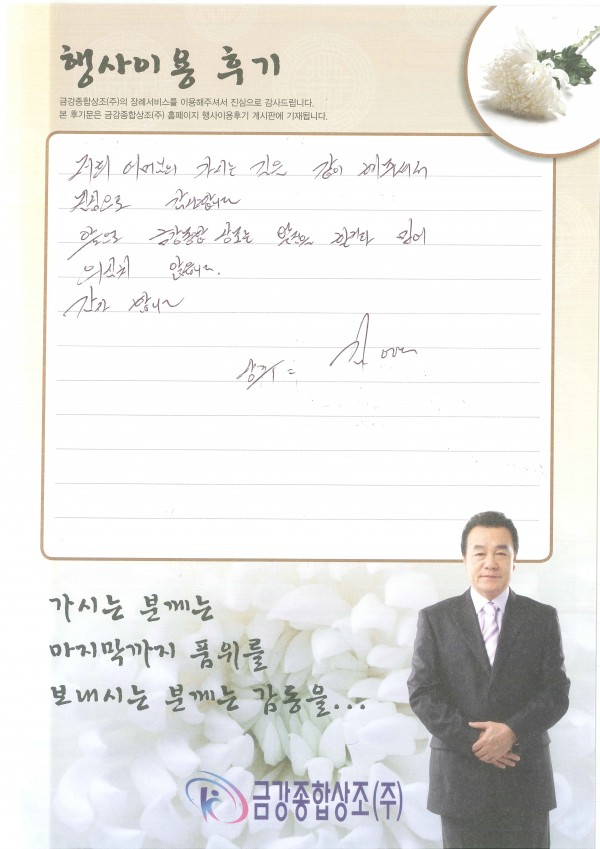 행사이용 후기
금강종합상조(주)의 장례서비스를 이용해주셔서 진심으로 감사드립니다.
본 후기문은 금강종합상조(주) 홈페이지 행사이용후기 게시판에 기재됩니다.
저희 어머님의 가시는 길을 같이 해주셔서
진심으로 감사합니다
앞으로 금강종합 상조는 발전을 한다라 믿어
의심치 않습니다.
감사 합니다
상주 :
가시는 분께는
마지막까지 품위를
보내시는 분께는 감동을...
금강종합상조(주)